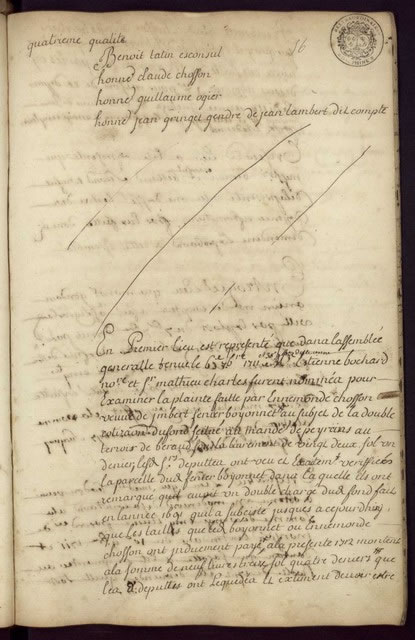 quatrieme qualité
16
Benoit tatin exconsul
honne claude choffon
honne guillaume ogier
honne jean gringet gendre de jean lambert dit compte
En Premier lieu est represanté que dans lassemblée
generalle tenue le Etienne bochard
no.re et s.r mathieu charles furent nominéa pour
Examiner la plainte faitte par Ennemonde choffon
veuve de imbert fenier boyonnet au subjet de la double
cotizaon du fond scitué au mande.t de peyrans au
terroir de beraud
de vingt deux sol un
denier lesd. s.rs deputtea ont veu et Examine verifficea
la parcelle dud. fenier boyonnet dans laquelle ils ont
remarqué quil auoit un double charge dud fond fait
en lannée 1691 quil a subcisté jusques a cejourdhuy
que les tailles que led. boyonnet ou Ennemonde
choffon ont induement payé a la presente 1712 montent
a la somme de neuf livres treize sol quatre deniers que
lea. s. deputtes ont Lequidéa et extiment devoir estre